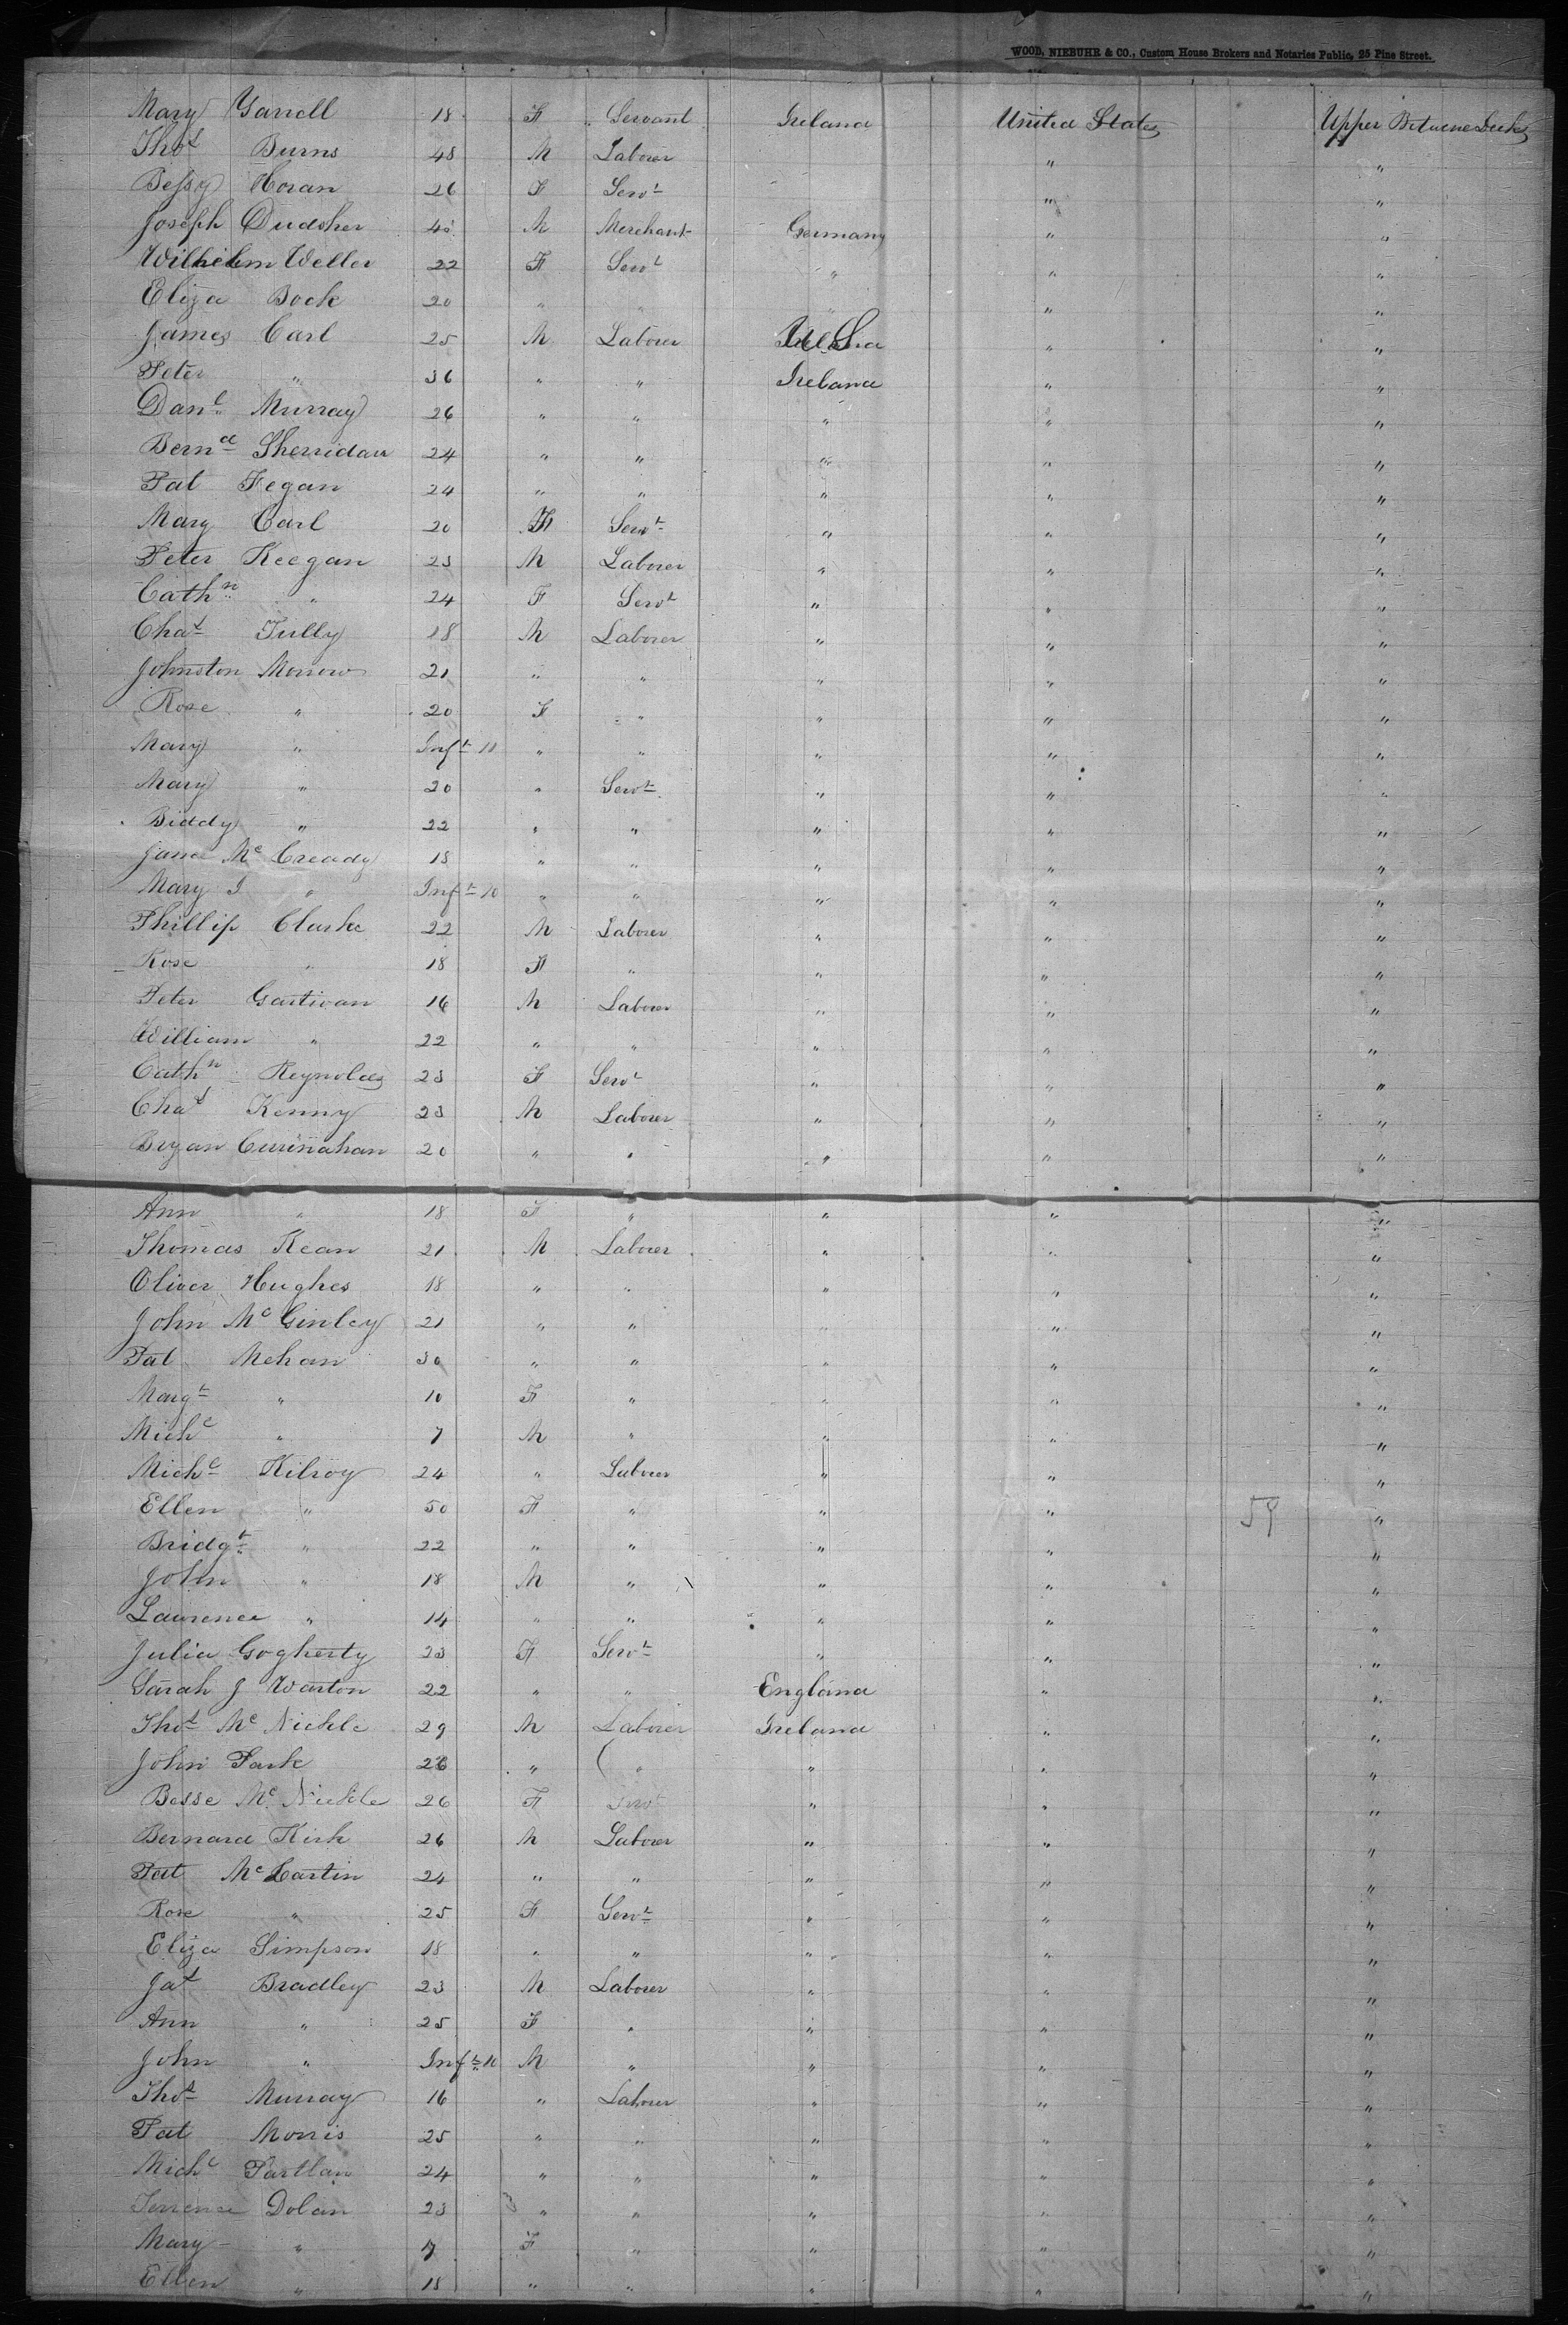 WOOD, NIEBUHR & CO., Custom House Brokers and Notaries Public, 25 Pine Street.
Mary Garrell 18 F Servant Ireland United States Upper Betweene Decks
Thos Burns 48 M Laborer " "
Bessy Horan 26 F Servt " "
Joseph Dudsher M Merchant Germany " "
Wilhelm Weller 22 F Servt " " "
Eliza Bock 20 " " " " "
James Carl 25 M Laborer U.S. " "
Peter " 36 " " Ireland " "
Danl Murray 26 " " " " "
Bernd Sherridan 24 " " " " "
Pat Fegan 24 " " " " "
Mary Carl 20 F Servt " " "
Peter Keegan 23 M Laborer " " "
Cathn " 24 F Servt " " "
Chas Tully 18 M Laborer " " "
Johnston Morrow 21 " " " " "
Rose " 20 F " " " "
Mary " Inft 10 " " " " "
Mary " 20 " Servt " " "
Biddy " 22 " " " " "
Jane Mc Cready 18 " " " " "
Mary J " Inft 10 " " " " "
Phillip Clarke 22 M Laborer " " "
Rose " 18 F " " " "
Peter Gartivan 16 M Laborer " " "
William " 22 " " " " "
Cathn Reynolds 23 F Servt " " "
Chas Kenny 23 M Laborer " " "
Bryan Curinahan 20 " " " " "
Ann " 18 F " " " "
Thomas Kean 21 M Laborer " " "
Oliver Hughes 18 " " " " "
John Mc Ginley 21 " " " " "
Pat Mehan 30 " " " " "
Margt " 10 F " " " "
Michl " 7 M " " " "
Michl Kilroy 24 " Laborer " " "
Ellen " 50 F " " " 59 "
Bridgt " 22 " " " " "
John " 18 M " " " "
Laurence " 14 " " " " "
Julia Gogherty 23 F Servt " " "
Sarah J Warton 22 " " England " "
Thos Mc Nickle 29 M Laborer Ireland " "
John Park 26 " " " " "
Besse Mc Nickle 26 F Servt " " "
Bernard Kirk 26 M Laborer " " "
Pat McCartin 24 " " " " "
Rose " 25 F Servt " " "
Eliza Simpson 18 " " " " "
Jas Bradley 23 M Laborer " " "
Ann " 25 F " " " "
John " Inft 10 M " " " "
Thos Murray 16 " Laborer " " "
Pat Morris 25 " " " " "
Michl Partlan 24 " " " " "
Terrence Dolan 23 " " " " "
Mary " F " " " "
Ellen " 18 " " " " "